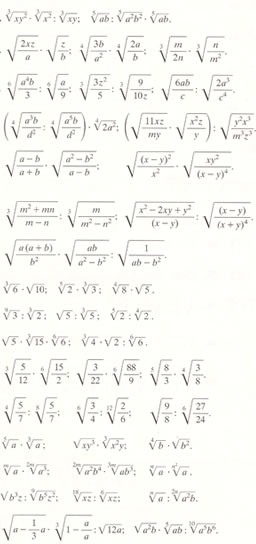 ∛(xy²) · ∛(x²) : ∛(xy); ⁵√(ab) : ⁵√(a²b²) · ⁵√(ab).
√(2xz/a) · √(z/b); ⁴√(3b/a²) · ⁴√(2a/b); ∛(m/2n) · ∛(n/m²).
⁶√(a⁴b/3) : ⁶√(a/9); ∛(3z²/5) : ∛(9/10z); √(6ab/c) : √(2a³/c⁴).
(⁴√(a³b/d²) : ⁴√(a⁵b/d²)) · ⁴√(2a²); (√(11xz/my) · √(x²z/y)) : √(y²x³/m³z³)
√((a−b)/(a+b)) · √((a²−b²)/(a−b)); √((x−y)²/x²) · √(xy²/(x−y)⁴).
∛((m²+mn)/(m−n)) · ∛(m/(m²−n²)); √((x²−2xy+y²)/(x−y)) : √((x−y)/(x+y)⁴)
√(a(a+b)/b²) · √(ab/(a²−b²)) : √(1/(ab−b²))
∛6 · √10; ⁴√2 · ∛3; ⁴√8 · √5.
∛3 : ∛2; √5 : ∛5;
√5 · ∛15 · ⁶√6; ∛4 · √2 : ⁶√6.
∛(5/12) · ⁶√(15/2); √(3/22) · ⁶√(88/9); ⁵√(8/3) · ⁴√(3/8).
⁴√(5/7) : ⁸√(5/7); ⁶√(3/4) : ¹²√(2/6); √(9/8) : ⁶√(27/24)
√(xy³) · ∛(x²y); ⁴√b · √(b²).
ᵐ√a · ²ᵐ√(a³); ²ᵐ√(a²b⁴) · ³ᵐ√(ab³);
√(b³z) : ⁹√(b⁵z²); ¹⁸√(xz) : ⁶√(xz); ⁿ√a : ²ⁿ√(a²b).
√(a − 1/3 a) · ∛(1 − a/a) : √(12a);